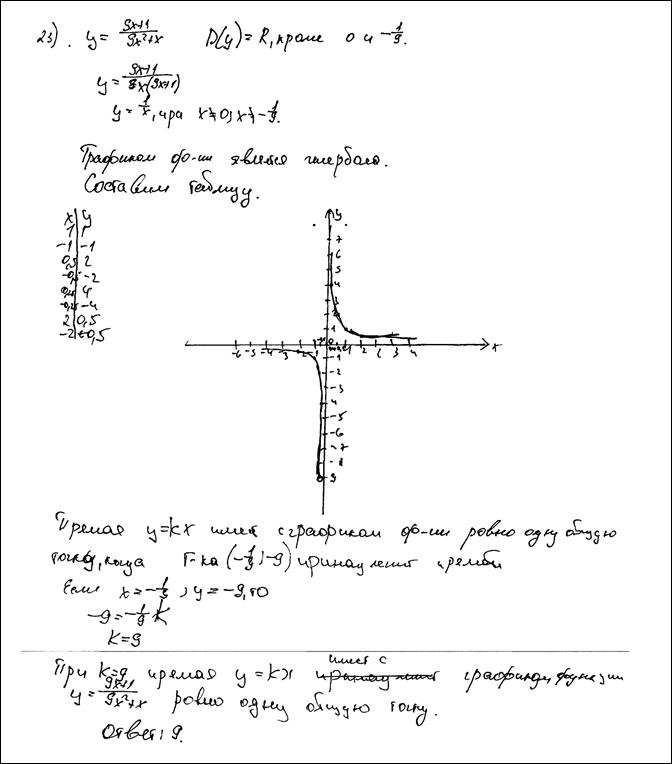 23). y = 9x+1/9x²+x D(y) = R, кроме 0 и -1/9.
y = 9x+1/x(9x+1)
y = 1/x, при x≠0; x≠-1/9.
Графиком ф-ии является гипербола.
Составим таблицу.
x | y
1 | 1
-1 | -1
0,5 | 2
-0,5 | -2
0,25 | 4
-0,25 | -4
2 | 0,5
-2 | -0,5
y
7
6
5
4
3
2
1
-6 -5 -4 -3 -2 -1 0 1 2 3 4 x
-1
-2
-3
-4
-5
-6
-7
-8
-9
Прямая y=kx имеет с графиком ф-ии ровно одну общую
точку, когда т-ка (-1/9; -9) принадлежит прямой
Если x = -1/9, y = -9, то
-9 = -1/9 K
K = 9
При K=9 прямая y = kx имеет с графиком функции
y = 9x+1/9x²+x ровно одну общую точку.
Ответ: 9.